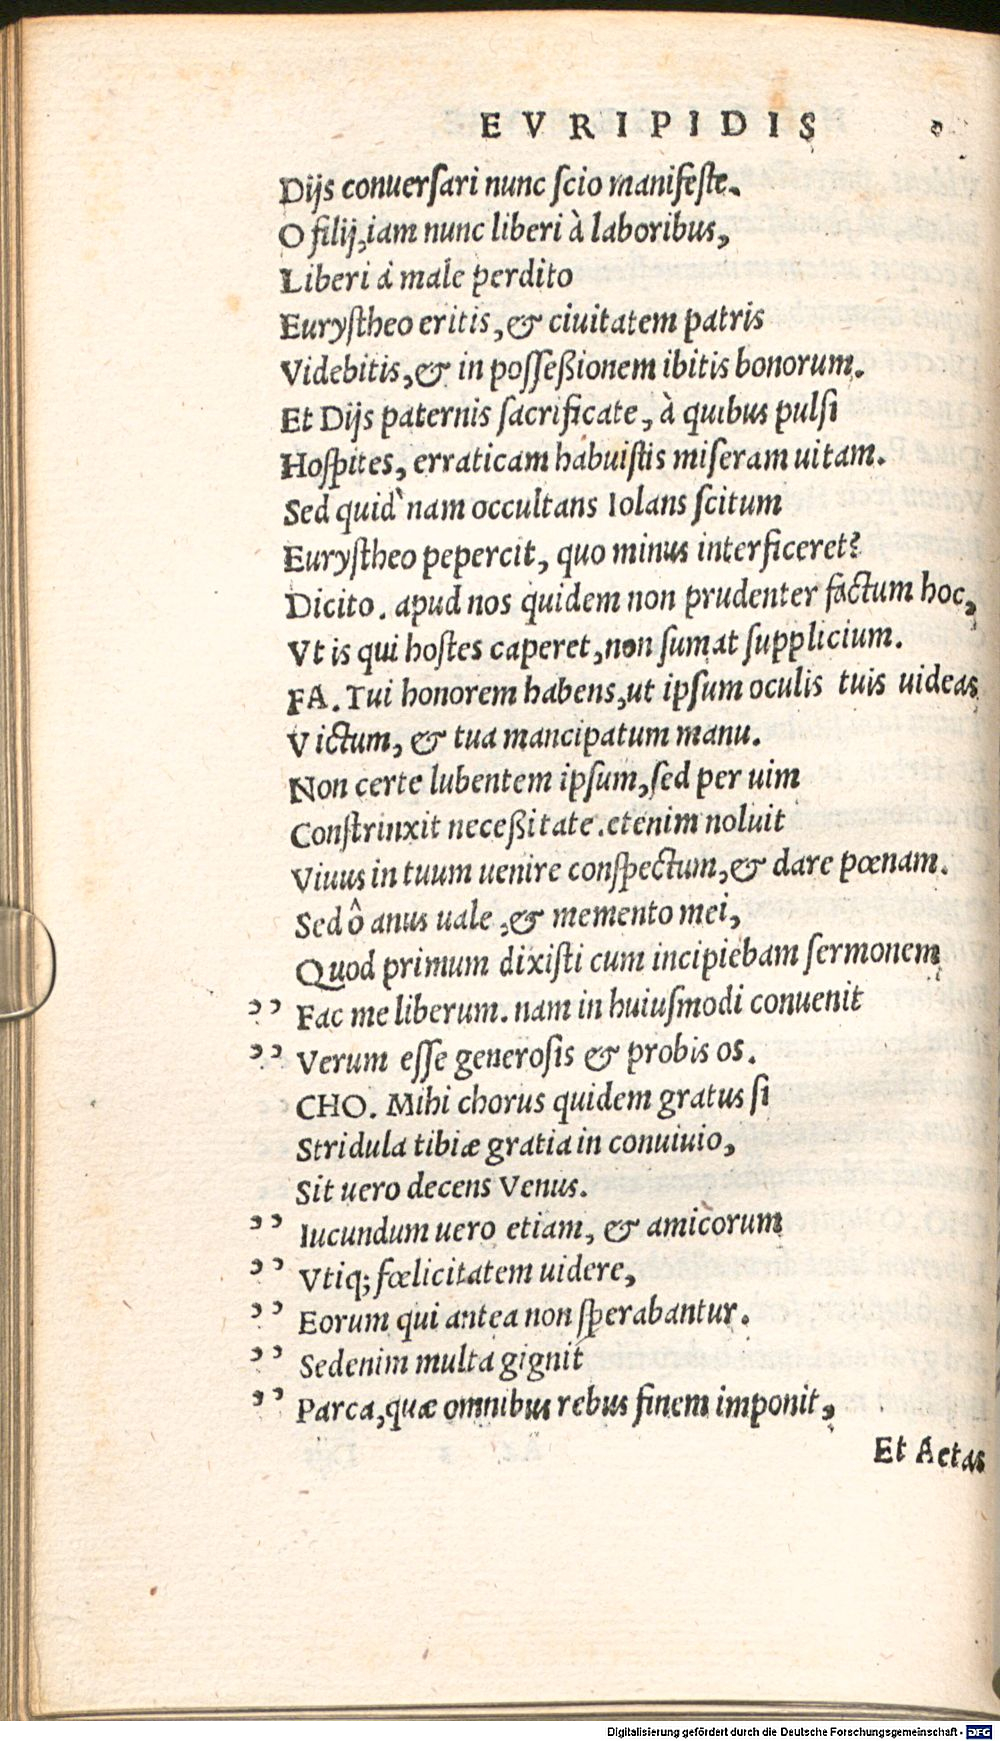 EVRIPIDIS
Dijs conuerſari nunc ſcio manifeſte.
O filij, iam nunc liberi à laboribus,
Liberi à male perdito
Euryſtheo eritis, & ciuitatem patris
Videbitis, & in poſſeßionem ibitis bonorum.
Et Dijs paternis ſacrificate, à quibus pulſi
Hoſpites, erraticam habuiſtis miſeram uitam.
Sed quid`nam occultans Iolans ſcitum
Euryſtheo pepercit, quo minus interficeret?
Dicito. apud nos quidem non prudenter factum hoc,
Vt is qui hoſtes caperet, non ſumat ſupplicium.
FA. Tui honorem habens, ut ipſum oculis tuis uideas
Victum, & tua mancipatum manu.
Non certe lubentem ipſum, ſed per uim
Conſtrinxit neceßitate. etenim noluit
Viuus in tuum uenire conſpectum, & dare pœnam.
Sed ô anus uale, & memento mei,
Quod primum dixiſti cum incipiebam ſermonem
,, Fac me liberum. nam in huiuſmodi conuenit
,, Verum eſſe generoſis & probis os.
CHO. Mihi chorus quidem gratus ſi
Stridula tibiæ gratia in conuiuio,
Sit uero decens Venus.
,, Iucundum uero etiam, & amicorum
,, Vtiq; fœlicitatem uidere,
,, Eorum qui antea non ſperabantur.
,, Sedenim multa gignit
,, Parca, quæ omnibus rebus finem imponit,
Et Aetas
Digitalisierung gefördert durch die Deutsche Forschungsgemeinschaft - DFG